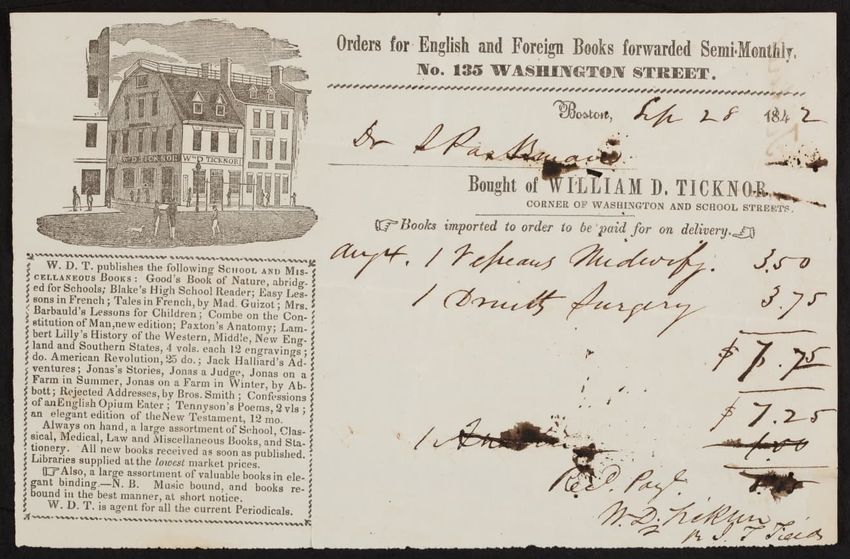 Wm. D. TICKNOR
Wm. D. TICKNOR
Orders for English and Foreign Books forwarded Semi-Monthly,
No. 135 WASHINGTON STREET.
Boston, Sep 28 1842
Dr S Parkman
Bought of WILLIAM D. TICKNOR,
CORNER OF WASHINGTON AND SCHOOL STREETS.
☞ Books imported to order to be paid for on delivery. ☜
1 Velpeaus Midwify. 3.50
1 Druitts Surgery 3.75
$ 7.75
$ 7.25
1
1.00
Recd. Payt.
W. D. Ticknor
J. T. Fields
W. D. T. publishes the following SCHOOL AND MIS-
CELLANEOUS BOOKS: Good's Book of Nature, abridg-
ed for Schools; Blake's High School Reader; Easy Les-
sons in French; Tales in French, by Mad. Guizot; Mrs.
Barbauld's Lessons for Children; Combe on the Con-
stitution of Man, new edition; Paxton's Anatomy; Lam-
bert Lilly's History of the Western, Middle, New Eng-
land and Southern States, 4 vols. each 12 engravings;
do. American Revolution, 25 do.; Jack Halliard's Ad-
ventures; Jonas's Stories, Jonas a Judge, Jonas on a
Farm in Summer, Jonas on a Farm in Winter, by Ab-
bott; Rejected Addresses, by Bros. Smith; Confessions
of an English Opium Eater; Tennyson's Poems, 2 vls;
an elegant edition of the New Testament, 12 mo.
Always on hand, a large assortment of School, Clas-
sical, Medical, Law and Miscellaneous Books, and Sta-
tionery. All new books received as soon as published.
Libraries supplied at the lowest market prices.
☞ Also, a large assortment of valuable books in ele-
gant binding.—N. B. Music bound, and books re-
bound in the best manner, at short notice.
W. D. T. is agent for all the current Periodicals.